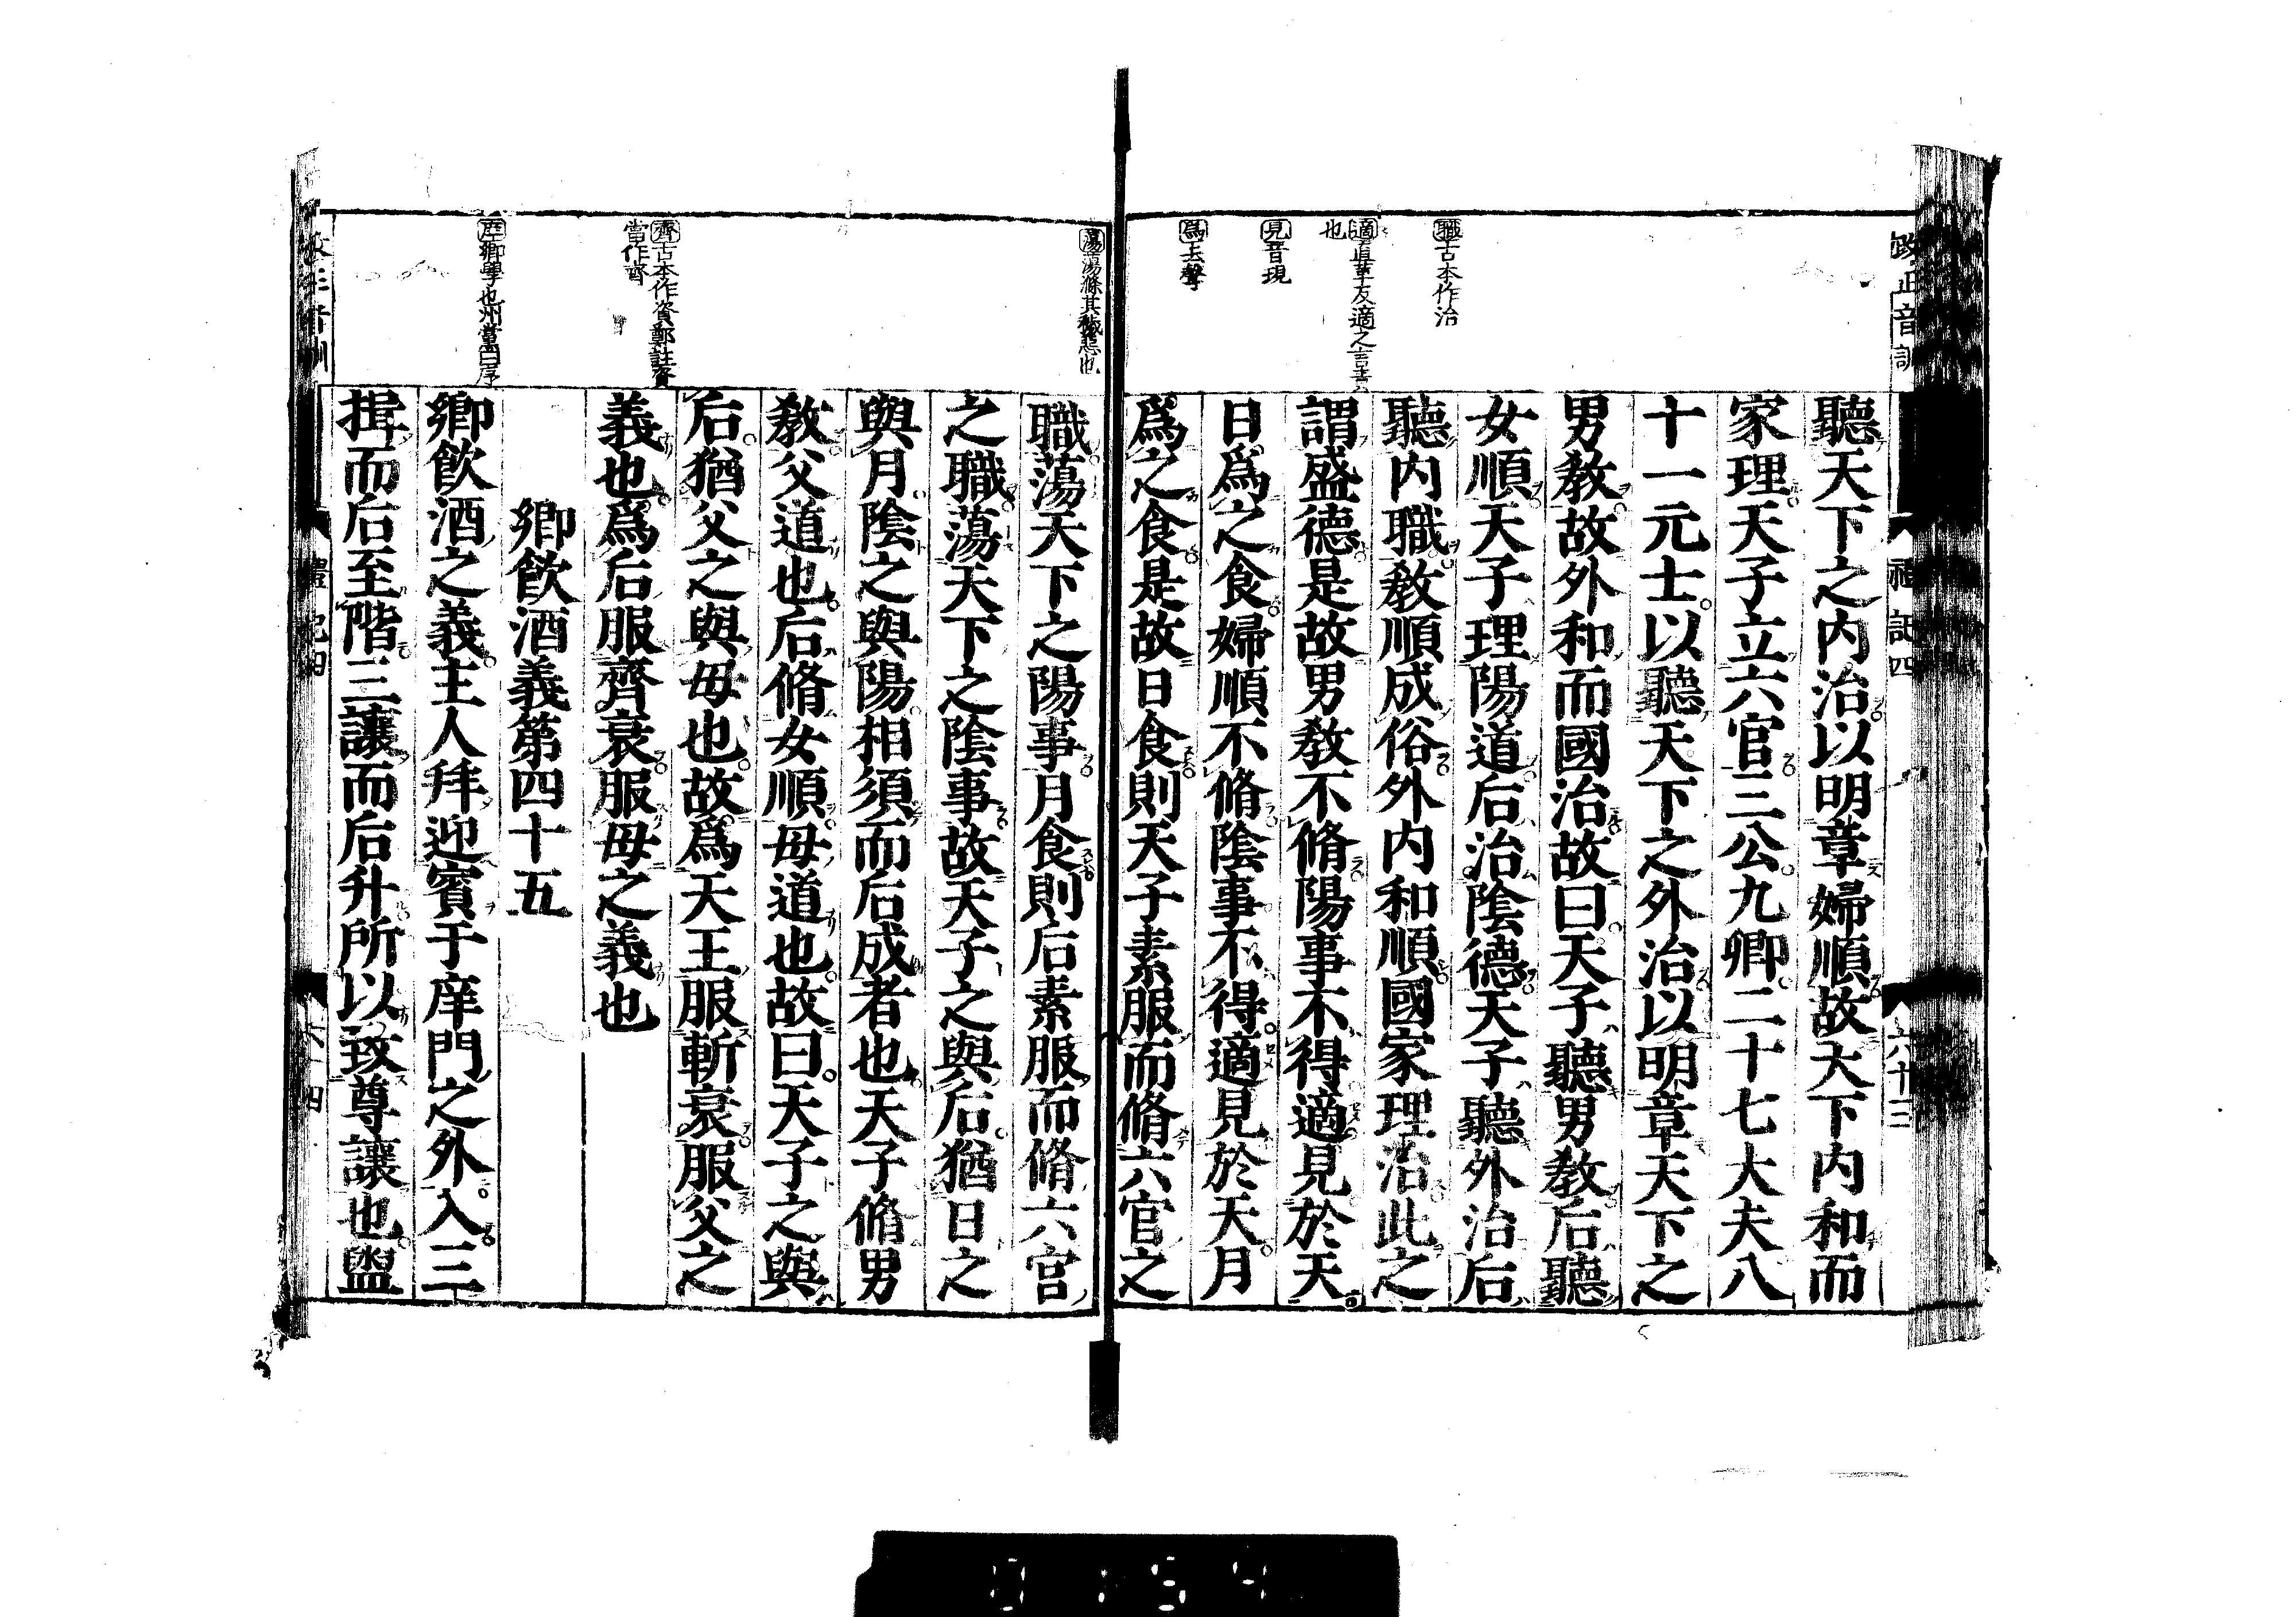 改正音訓
禮記四
六十三
職古本作治
適直革反適之言責
也
見音現
爲去聲
聽天下之内治以明章婦順故天下内和而
家理天子立六官三公九卿二十七大夫八
十一元士以聽天下之外治以明章天下之
男教故外和而國治故曰天子聽男教后聽
女順天子理陽道后治陰德天子聽外治后
聽内職教順成俗外内和順國家理治此之
謂盛德是故男教不脩陽事不得適見於天
日爲之食婦順不脩陰事不得適見於天月
爲之食是故日食則天子素服而脩六官之
蕩蕩滌其穢惡也
齊古本作資鄭註資
當作齊
庠鄉學也州黨曰序
職蕩天下之陽事月食則后素服而脩六宮
之職蕩天下之陰事故天子之與后猶日之
與月陰之與陽相須而后成者也天子脩男
教父道也后脩女順母道也故曰天子之與
后猶父之與母也故爲天王服斬衰服父之
義也爲后服齊衰服母之義也
鄉飲酒義第四十五
鄉飲酒之義主人拜迎賓于庠門之外入三
揖而后至階三讓而后升所以致尊讓也盥
禮記四